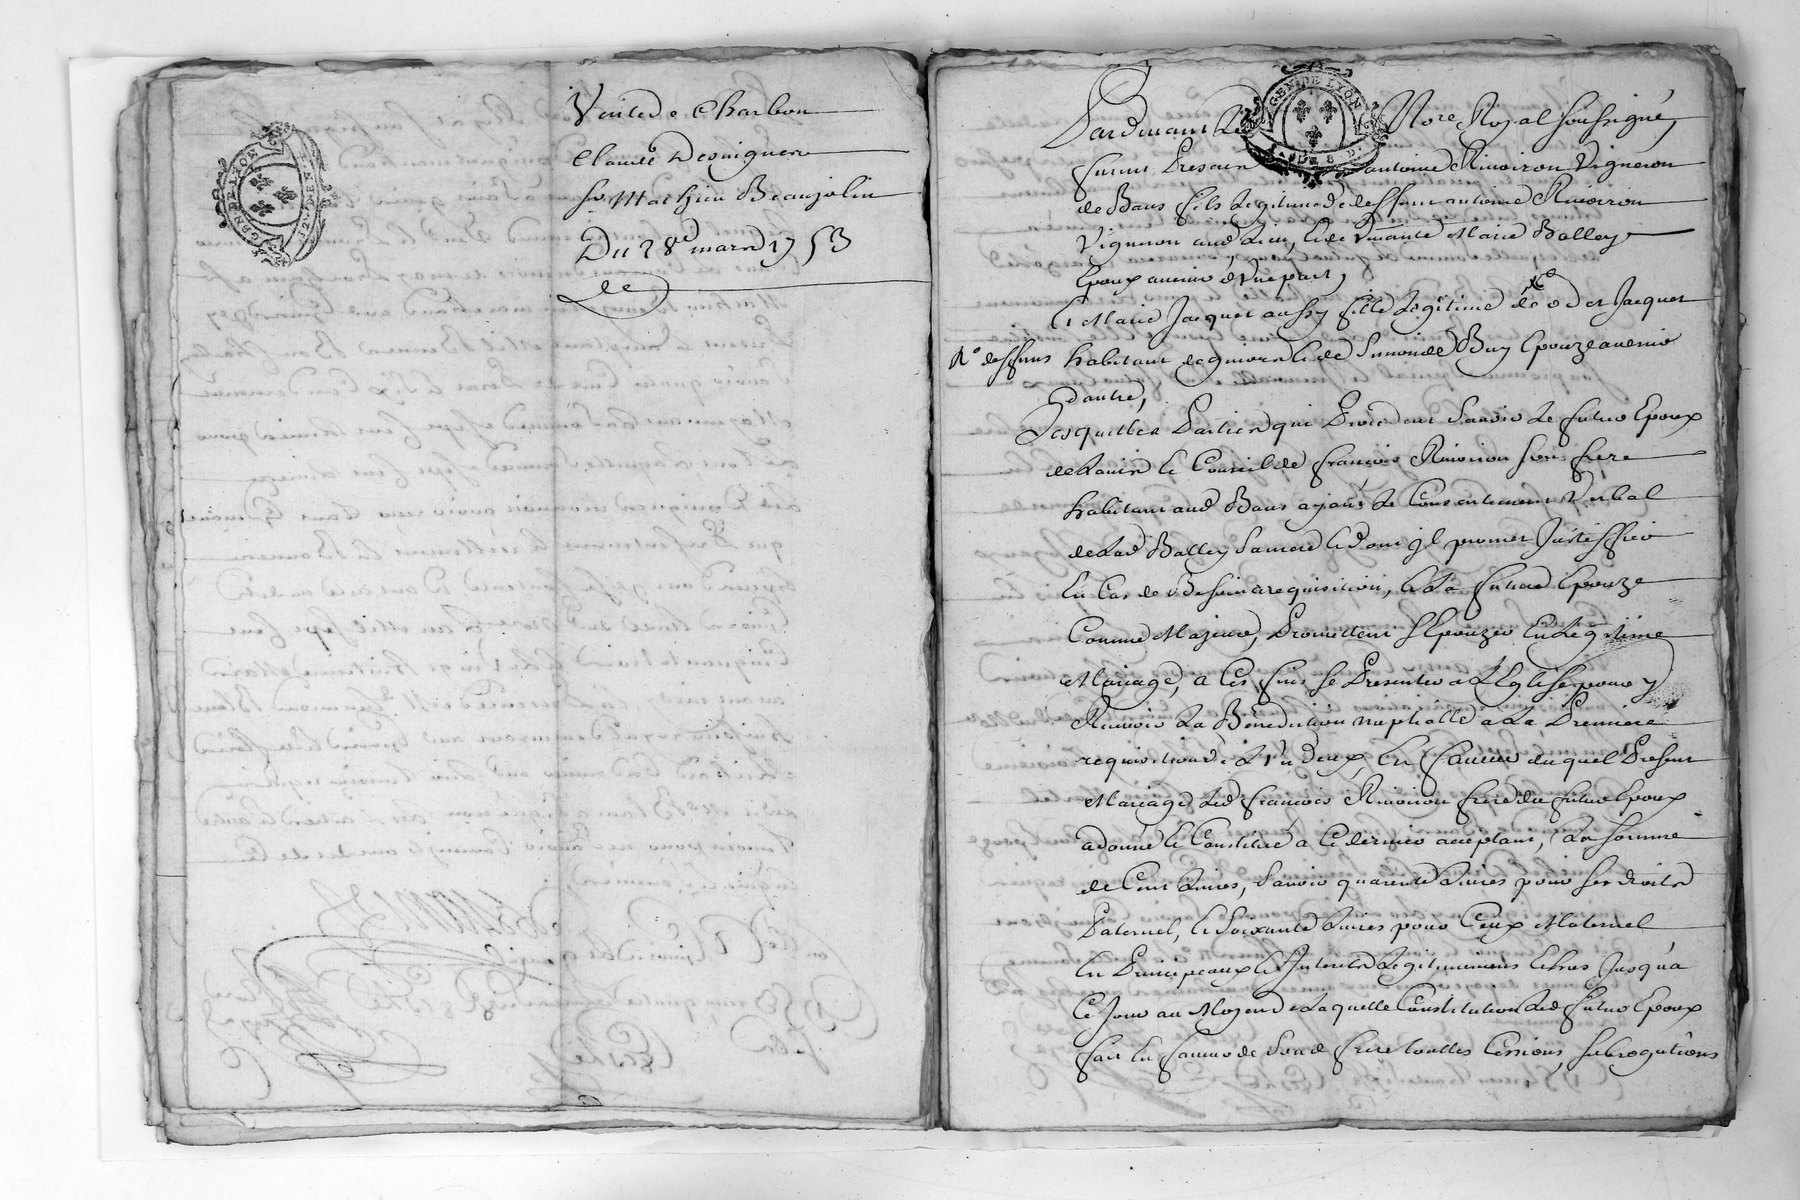 Vente de Charbon
Claude
Sr Mathieu Beaujolin
Du 28e mars 1753
GEN DE LYON
Pardevant Le Nore Royal soussigné,
furent Presens antoine Rivoiron Vigneron
de Bans fils Legitime de deffunt antoine Rivoiron
Vigneron aud Lieu, et de vivante Marie Balley
Epoux avenir d'Une part,
Et Marie Jacquet aussy fille Legitime de Jacquet
habitant de givors et de Buy Epouze avenir
d'autre,
Lesquelles Parties qui procedent Savoir Le futur Epoux
de Lavis et Conseil de françois Rivoiron son frere
habitant aud Bans ayant Le Consentement Verbal
de Lad Balley sa mere et dont jl promet justiffier
En Cas de Besoin a requisition, et La future Epouze
Comme Majeure, Promettent s'Epouzer En Legitime
Mariage, a Ces fins se Presenter a L'Eglise pour y
Recevoir La Bénediction nuptialle a La Premiere
requisition de L'un d'eux, En faveur duquel Present
Mariage Led françois Rivoiron frere du futur Epoux
a donné et Constitué a Ce dernier acceptant, La somme
de Cent Livres, Savoir quarente Livres pour ses droits
Paternel, et soixante Livres pour Ceux Maternel
En Principeaux et Interets Legitimement Echus Jusqu'a
Ce Jour au Moyen de Laquelle Constitution Led futur Epoux
fait En faveur de Sond frere touttes Cessions, subrogations